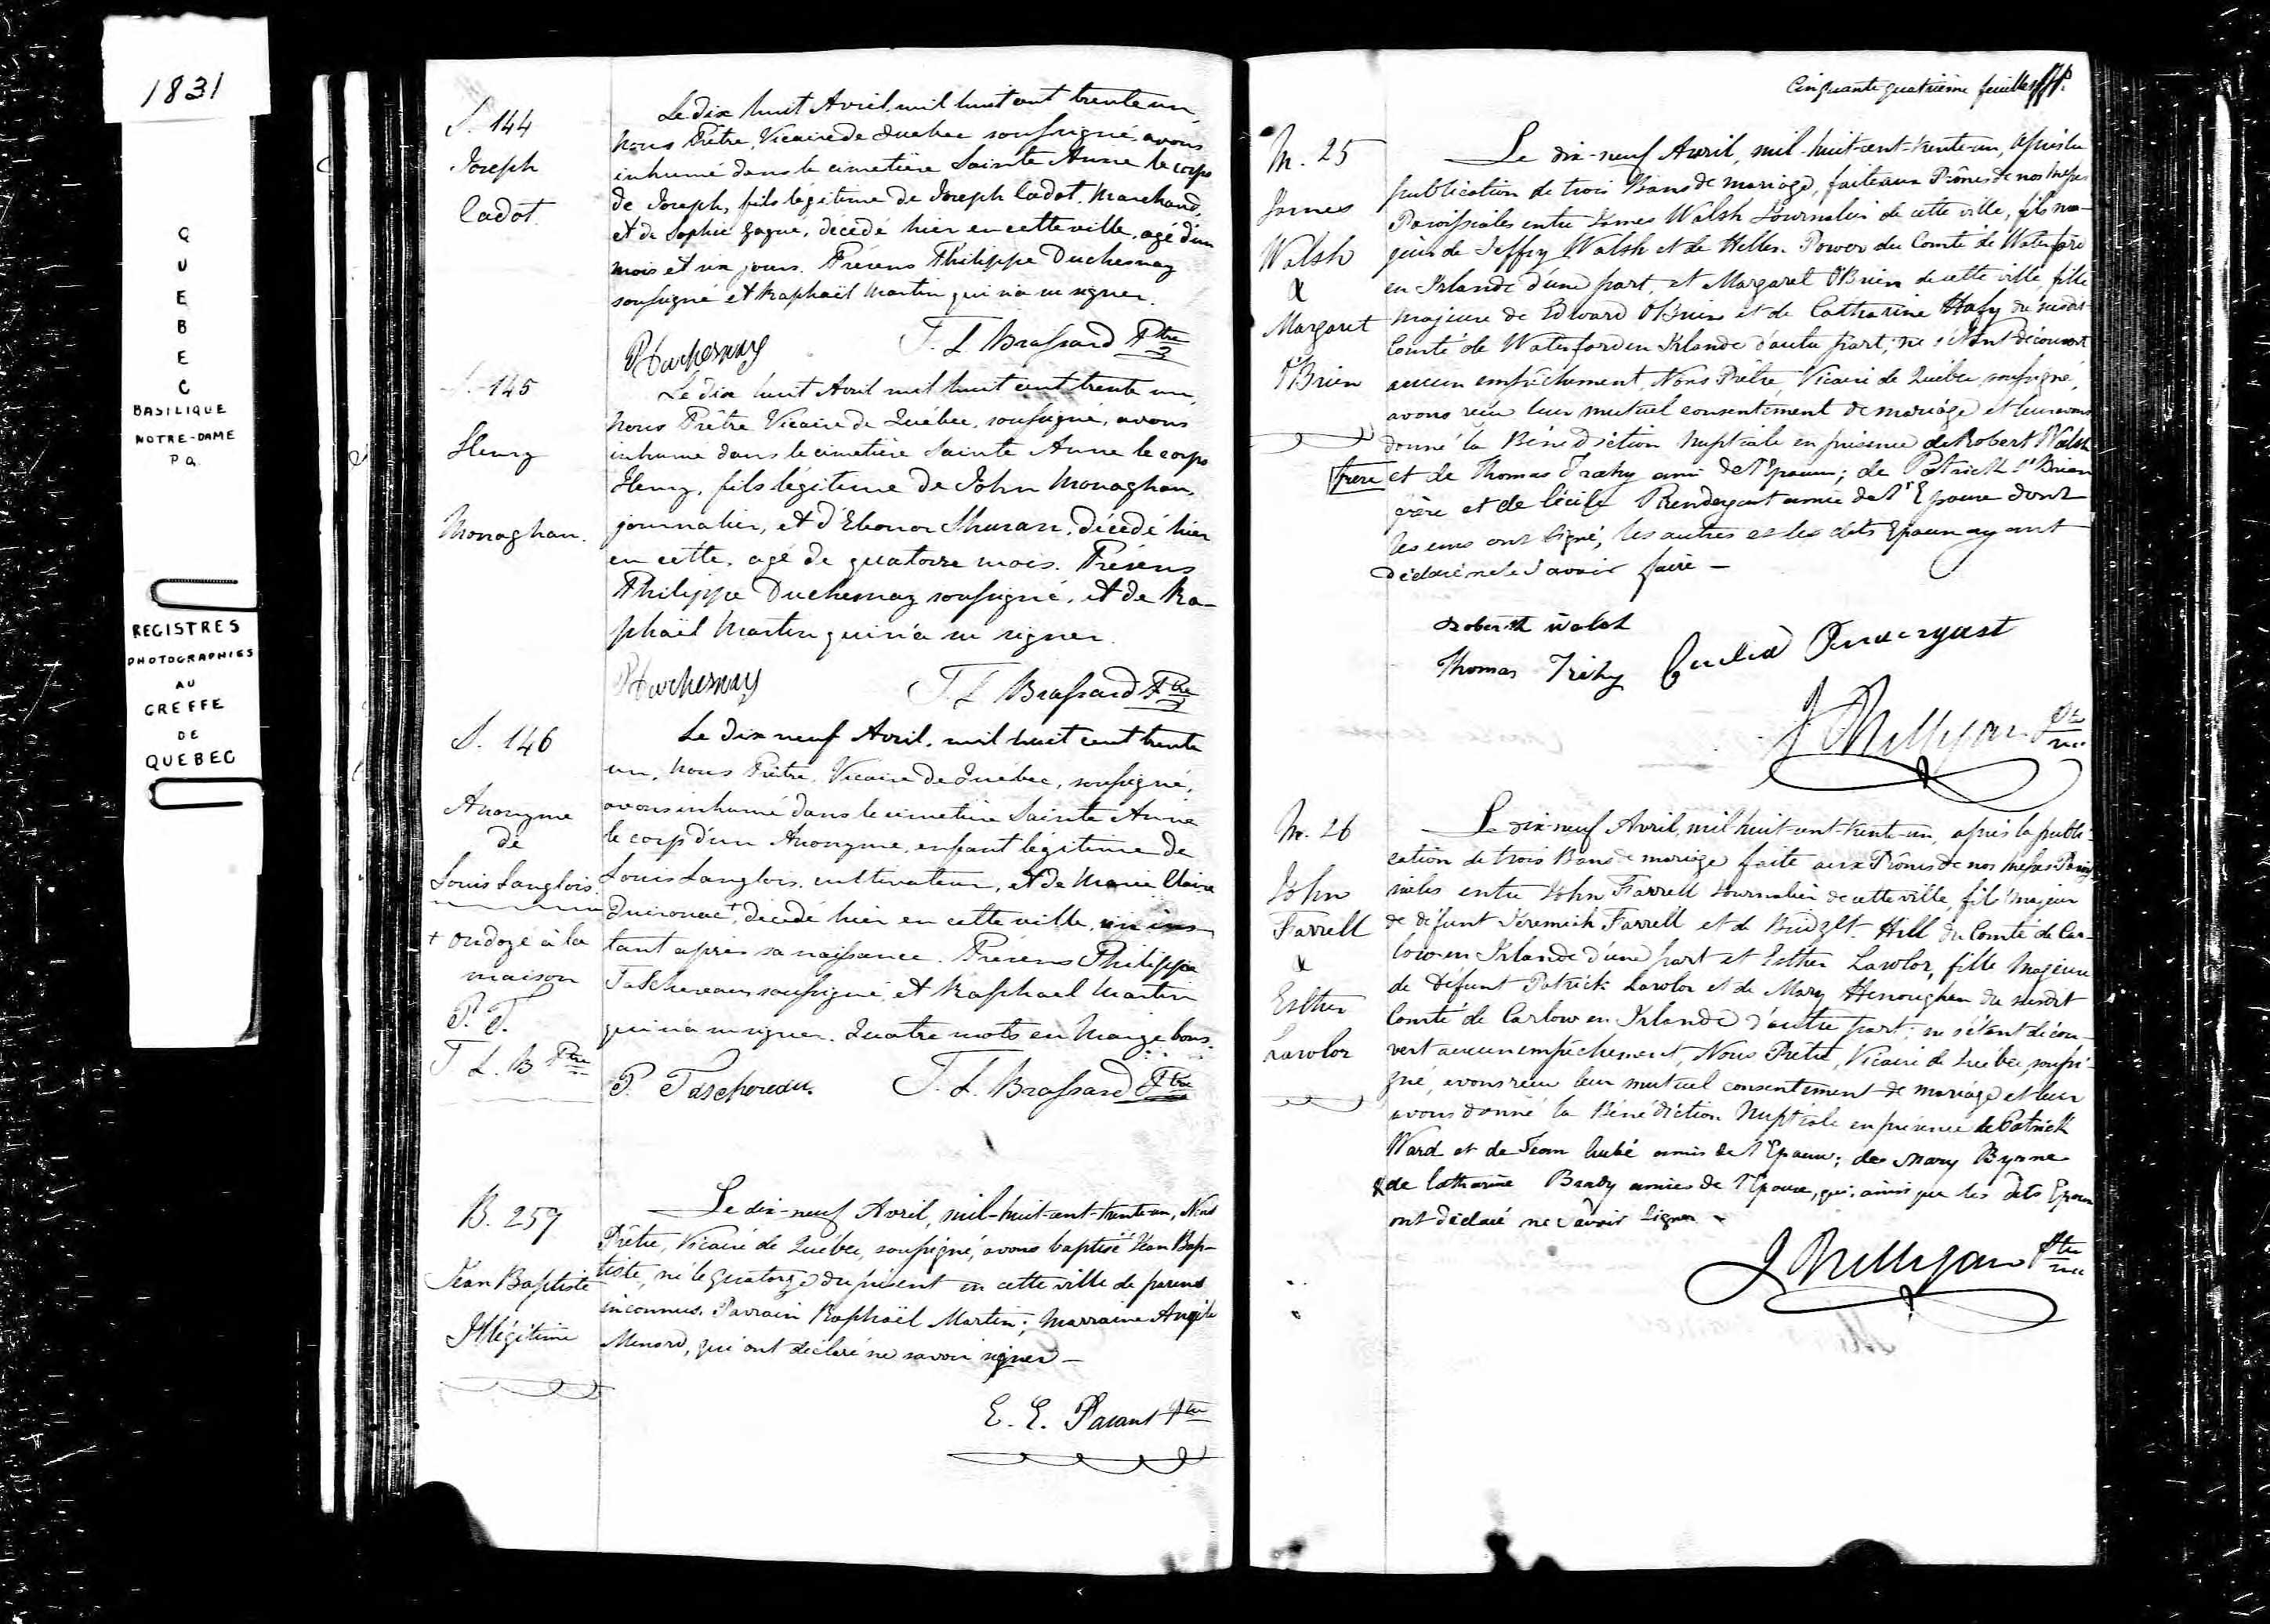 1831
QUEBEC
BASILIQUE
NOTRE-DAME
P.Q.
REGISTRES
PHOTOGRAPHIES
AU
GREFFE
DE
QUEBEC
S. 144
Joseph
Cadot.
Le dix huit Avril, mil huit cent trente un,
nous Prêtre, Vicaire de Quebec soussigné, avons
inhumé dans le cimetière Sainte Anne le corps
de Joseph, fils légitime de Joseph Cadot, Marchand,
et de Sophie Gagné, décédé hier en cette ville, agé d'un
mois et six jours. Présens Philippe Duchesnay
soussigné et Raphaël Martin qui n'a su signer.
P. Duchesnay T. L. Brassard Ptre
S. 145
Henry
Monaghan.
Le dix huit Avril mil huit cent trente un,
nous Prêtre Vicaire de Québec, soussigné, avons
inhumé dans le cimetière Sainte Anne le corps
Henry, fils légitime de John Monaghan,
journalier, et d'Eleonor, décédé hier
en cette, agé de quatorze mois. Présens
Philippe Duchesnay soussigné, et de Ra-
phaël Martin qui n'a su signer.
P. Duchesnay T. L. Brassard Ptre
S. 146
Anonyme
de
Louis Langlois.
+ ondoyé à la
maison
P. T.
T. L. B. Ptre
Le dix neuf Avril, mil huit cent trente
un, nous Prêtre, Vicaire de Québec, soussigné,
avons inhumé dans le cimetière Sainte Anne
le corps d'un Anonyme, enfant légitime de
Louis Langlois, cultivateur, et de Marie Claire
+, décédé hier en cette ville, un ins-
tant après sa naissance. Présens Philippe
Taschereau soussigné, et Raphael Martin
qui n'a su signer. Quatre mots en marge bons.
P. Taschereau. T. L. Brassard Ptre
B. 259
Jean Baptiste
Illégitime
Le dix-neuf Avril, mil-huit-cent-trente-un, Nous
Prêtre, Vicaire de Québec, soussigné, avons baptisé Jean Bap-
tiste, né le quatorze du présent en cette ville de parens
inconnus. Parrain Raphaël Martin; Marraine Angèle
Menard, qui ont déclaré ne savoir signer—
E. E. Parant Ptre
Cinquante quatrième feuillet
M. 25
James
Walsh
&
Margaret
O'Brien
Le dix-neuf Avril, mil-huit-cent-trente-un, après la
publication de trois Bans de mariage, faite aux Prônes de nos Messes
Paroissiales entre James Walsh Journalier de cette ville, fils ma-
jeur de Jeffry Walsh et de Hellen Power du Comté de Waterford
en Irlande d'une part, et Margaret O'Brien de cette ville fille
majeure de Edward O'Brien et de Catharine du susdit
Comté de Waterford en Irlande d'autre part; ne s'étant découvert
aucun empêchement, Nous Prêtre, Vicaire de Québec soussigné,
avons reçu leur mutuel consentement de mariage et leur avons
donné la Bénédiction Nuptiale en présence de Robert Walsh
frère et de Thomas Trehy ami de l'Epoux; de Patrick O'Brien
frère et de Cécile Prendergast amie de l'Epouse dont
les uns ont signé, les autres et les dits Epoux ayant
déclaré ne le savoir faire —
Robert Walsh
Thomas Trehy Prendergast
Ptre
Vic.
M. 26
John
Farrell
&
Esther
Lawlor
Le dix-neuf Avril, mil-huit-cent-trente-un, après la publi-
cation de trois Bans de mariage faite aux Prônes de nos Messes Parois-
siales entre John Farrell Journalier de cette ville, fils majeur
de défunt Jeremiah Farrell et de Bridget Hill du Comté de Car-
low en Irlande d'une part et Esther Lawlor, fille Majeure
de défunt Patrick Lawlor et de Mary Henoughen du susdit
Comté de Carlow en Irlande d'autre part; ne s'étant décou-
vert aucun empêchement, Nous Prêtre, Vicaire de Québec, soussi-
gné, avons reçu leur mutuel consentement de mariage et leur
avons donné la Bénédiction Nuptiale en présence de Patrick
Ward et de Jean Hubé amis de l'Epoux; de Mary Byrne
& de Catharine Brady amies de l'Epouse, qui, ainsi que les dits Epoux
ont déclaré ne savoir signer
Ptre
Vic.